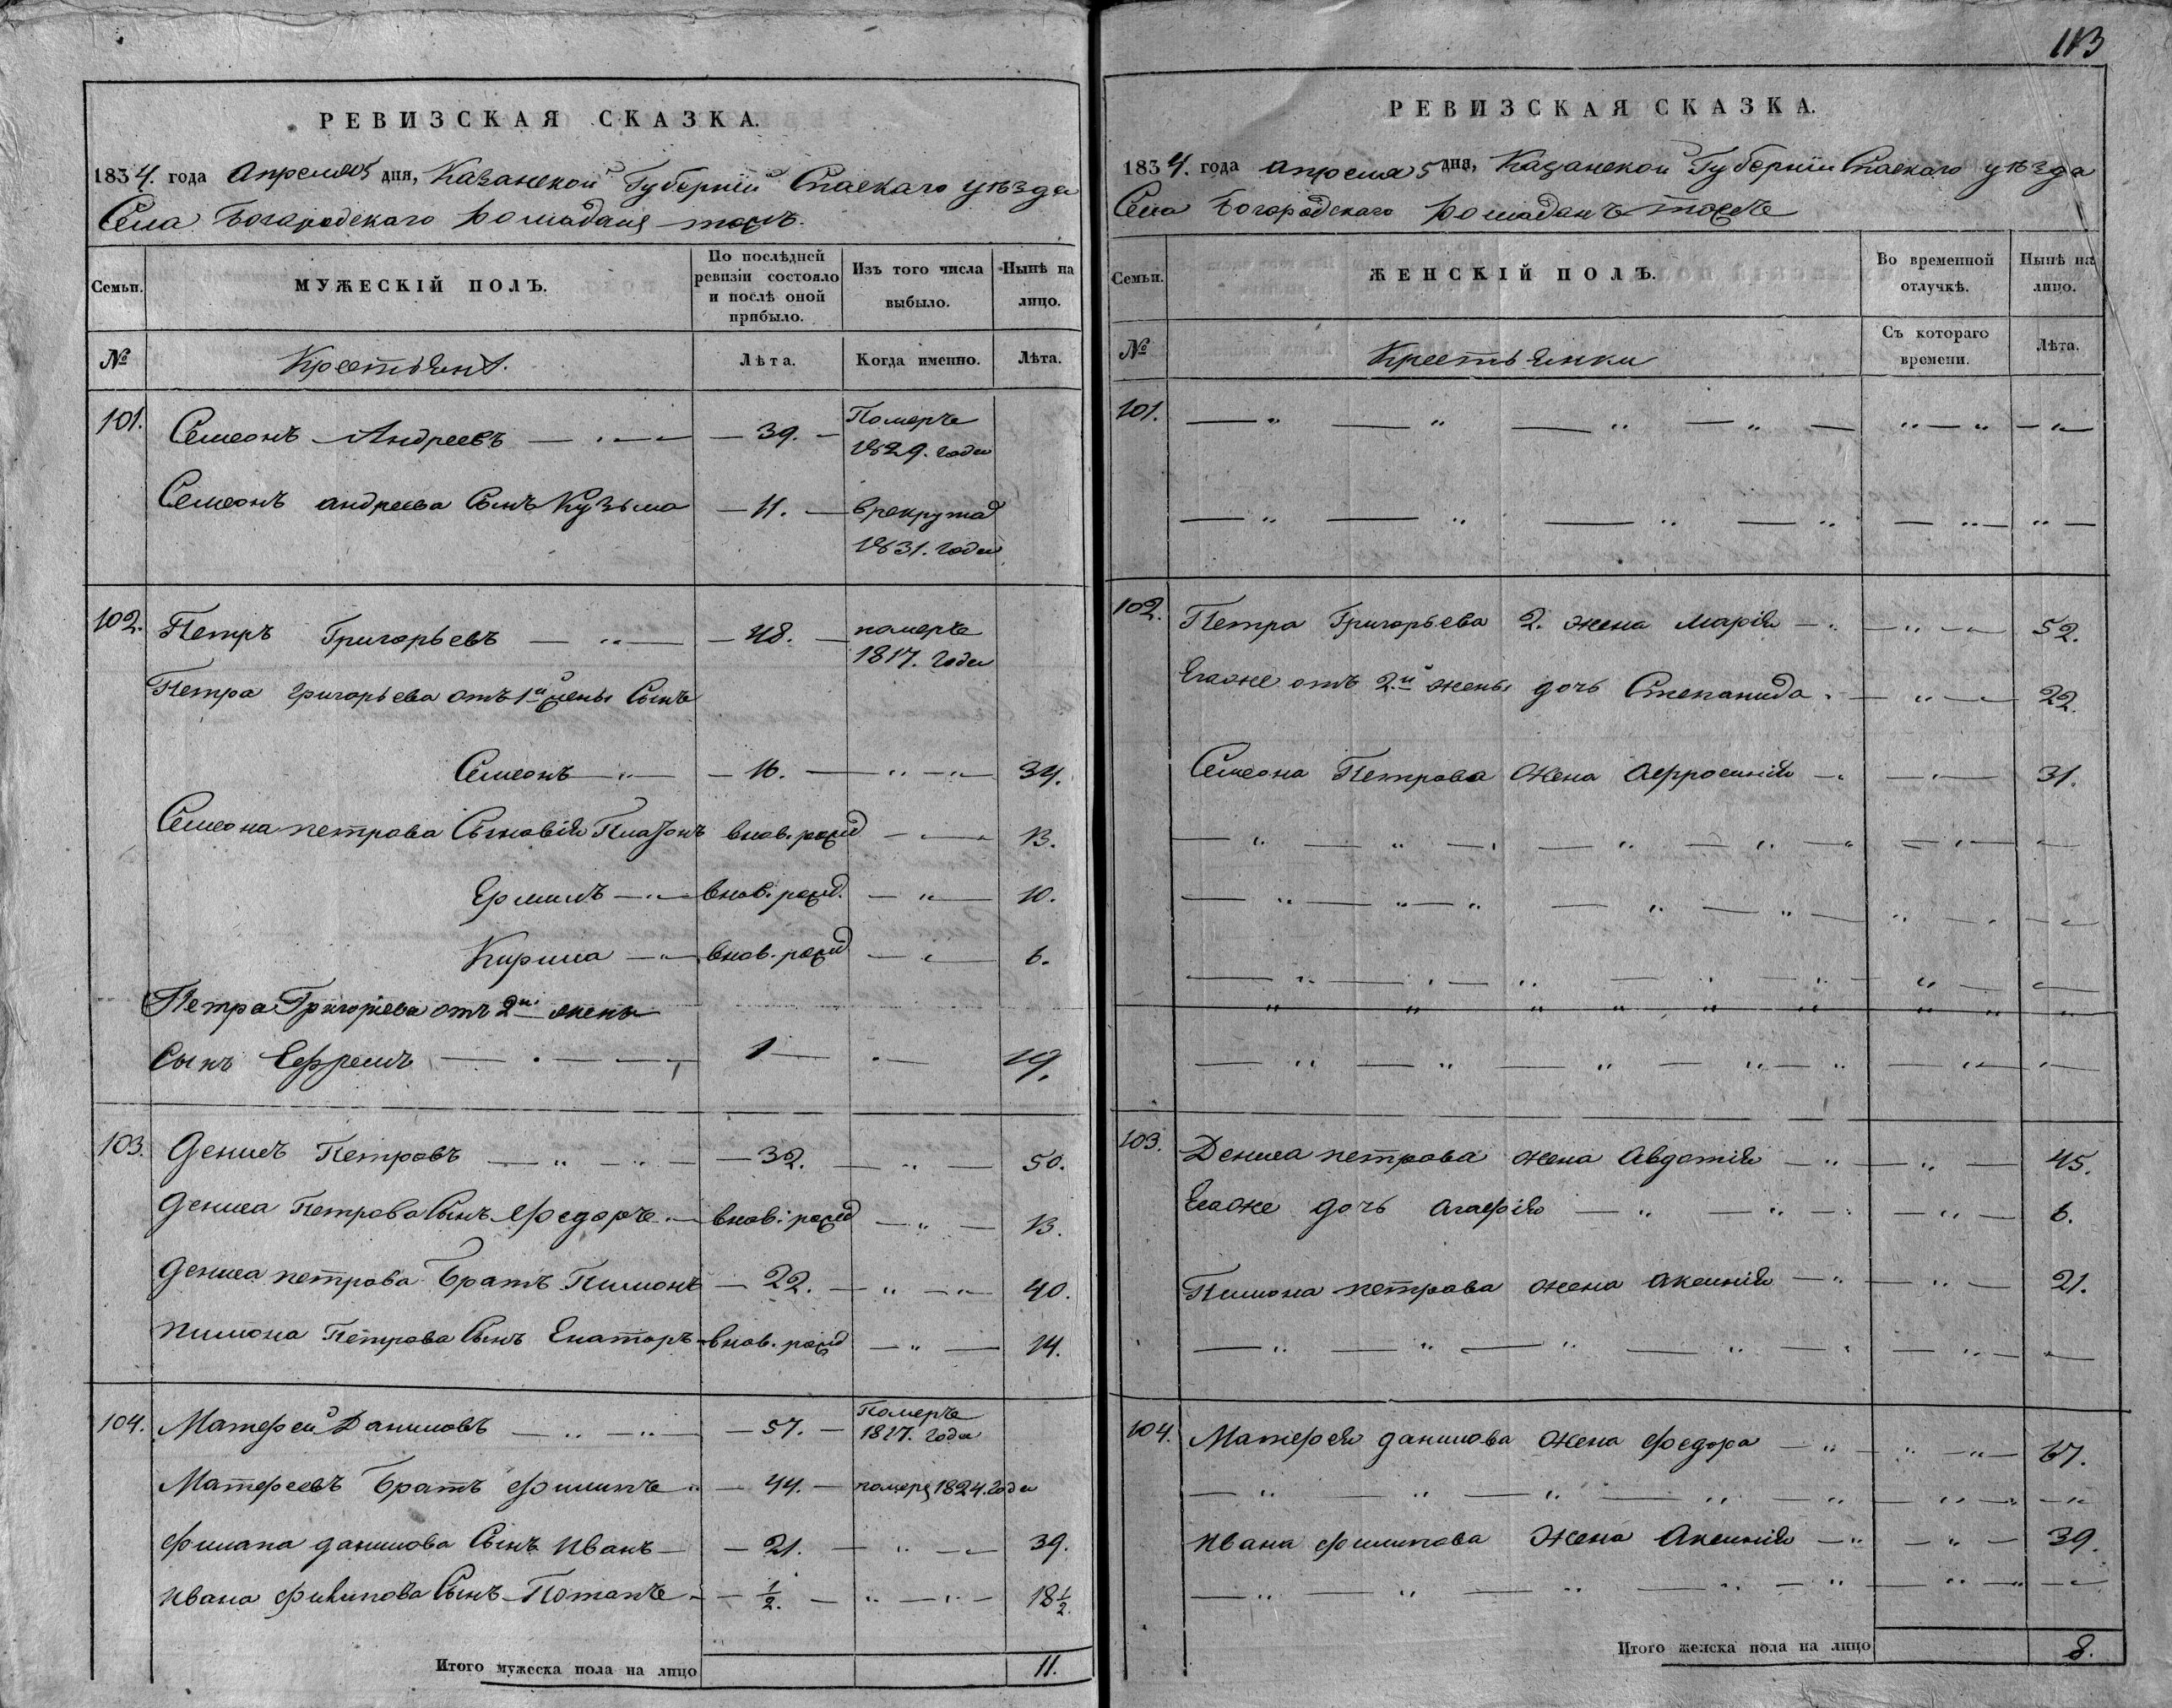 113
РЕВИЗСКАЯ СКАЗКА.
1834. года Апреля 5 дня, Казанской Губернии Спаскаго уѣзда
Села Богородскаго тожъ.
Семьи.
МУЖЕСКІЙ ПОЛЪ.
По послѣдней ревизіи состояло и послѣ оной прибыло.
Изъ того числа выбыло.
Нынѣ на лицо.
№
Крестьянѣ.
Лѣта.
Когда именно.
Лѣта.
101. Семеонъ Андреевъ — 39. — Померъ 1829. года
Семеонъ андреева Сынъ Кузьма — 11. — в рекрута 1831. года
102. Петръ Григорьевъ — 48. — померъ 1817. года
Петра григорьева отъ 1й жены Сынъ
Семеонъ — 16. — 34.
Семеона петрова Сыновія Платонъ внов. рожд — 13.
Ермилъ — внов. рожд. — 10.
Кирила — внов. рожд — 6.
Петра Григорiева отъ 2й жены
Сынъ Ефремъ — 1 — 19.
103. Денисъ Петровъ — 32. — 50.
Дениса Петрова Сынъ Федоръ — внов: рожд — 13.
Дениса петрова Братъ Пимонъ — 22. — 40.
Пимона Петрова Сынъ Екаторъ внов. рожд — 14.
104. Матфей Даниловъ — 57. — Померъ 1817. года
Матфеевъ Братъ Филипъ — 44. — померъ 1824. года
Филапа данилова Сынъ Иванъ — 21. — 39.
Ивана Филипова Сынъ Потапъ — 1/2. — 18 1/2.
Итого мужеска пола на лицо 11.
РЕВИЗСКАЯ СКАЗКА.
1834. года апреля 5 дня, Казанской Губернии Спаскаго уѣзда
Села Богородскаго тожъ
Семьи.
ЖЕНСКІЙ ПОЛЪ.
Во временной отлучкѣ.
Нынѣ на лицо.
№
Крестьянки
Съ котораго времени.
Лѣта.
101.
102. Петра Григорьева 2. жена Марія — 52.
Егаже отъ 2.й жены дочь Степанида — 22.
Семеона Петрова Жена Афросинія — 31.
103. Дениса петрова жена Авдотия — 45.
Егаже дочь агафія — 6.
Пимона петрова жена аксинія — 21.
104. Матфея данилова жена федора — 67.
Ивана филипова Жена Аксинія — 39.
Итого женска пола на лицо 8.